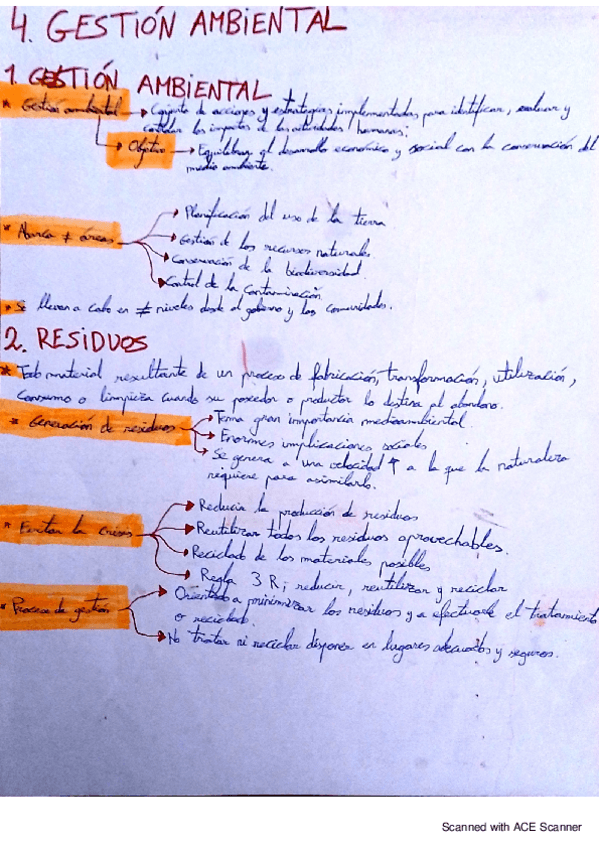 4. GESTIÓN AMBIENTAL
1. GESTIÓN AMBIENTAL
* Gestión ambiental → Conjunto de acciones y estrategias implementadas para identificar, evaluar y
controlar los impactos de las actividades humanas;
→ Objetivo → Equilibrar el desarrollo económico y social con la conservación del
medio ambiente.
→ Planificación del uso de la tierra
* Abarca ≠ áreas → Gestión de los recursos naturales
→ Conservación de la biodiversidad.
→ Control de la contaminación
* Se llevan a cabo en ≠ niveles desde el gobierno y las comunidades.
2. RESIDUOS
* Todo material resultante de un proceso de fabricación, transformación, utilización,
consumo o limpieza cuando su poseedor o productor lo destina al abandono.
* Generación de residuos → Tema gran importancia medioambiental.
→ Enormes implicaciones sociales
→ Se genera a una velocidad ↑ a la que la naturaleza
requiere para asimilarlo.
→ Reducir la producción de residuos
* Evitar la crisis → Reutilizar todos los residuos aprovechables.
→ Reciclad de los materiales posibles
→ Regla 3 R; reducir, reutilizar y reciclar
* Proceso de gestión → Orientado a minimizar los residuos y a efectuarle el tratamiento
o reciclado.
→ No tratar ni reciclar disponer en lugares adecuados y seguros.
Scanned with ACE Scanner